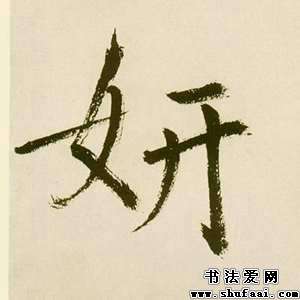 妍
书法爱网
www.shufaai.com